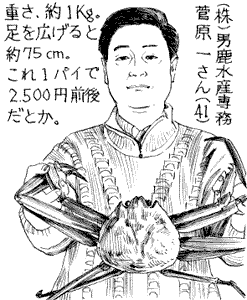 (株)男鹿水産専務
菅原一さん(41)
重さ、約1Kg。
足を広げると
約75cm。
これ1パイで
2.500円前後
だとか。